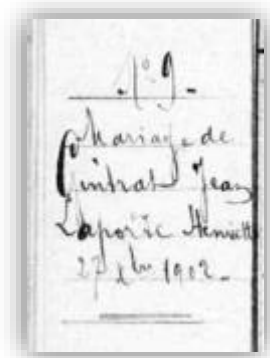 N° 9.
Mariage de
Gintrat Jean
Laporte Henriette
27 1902.